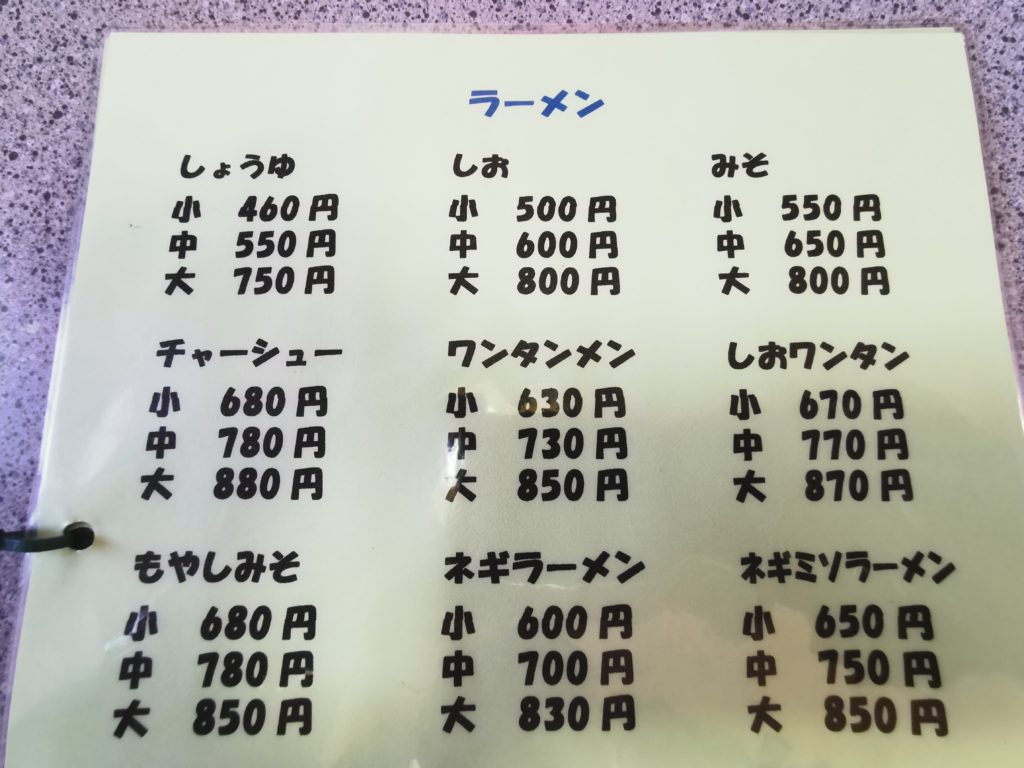 ラーメン
しょうゆ
小 460円
中 550円
大 750円
しお
小 500円
中 600円
大 800円
みそ
小 550円
中 650円
大 800円
チャーシュー
小 680円
中 780円
大 880円
ワンタンメン
小 630円
中 730円
大 850円
しおワンタン
小 670円
中 770円
大 870円
もやしみそ
小 680円
中 780円
大 850円
ネギラーメン
小 600円
中 700円
大 830円
ネギミソラーメン
小 650円
中 750円
大 850円